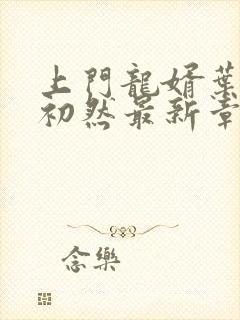 上門龍婿葉
初然最新章
念樂